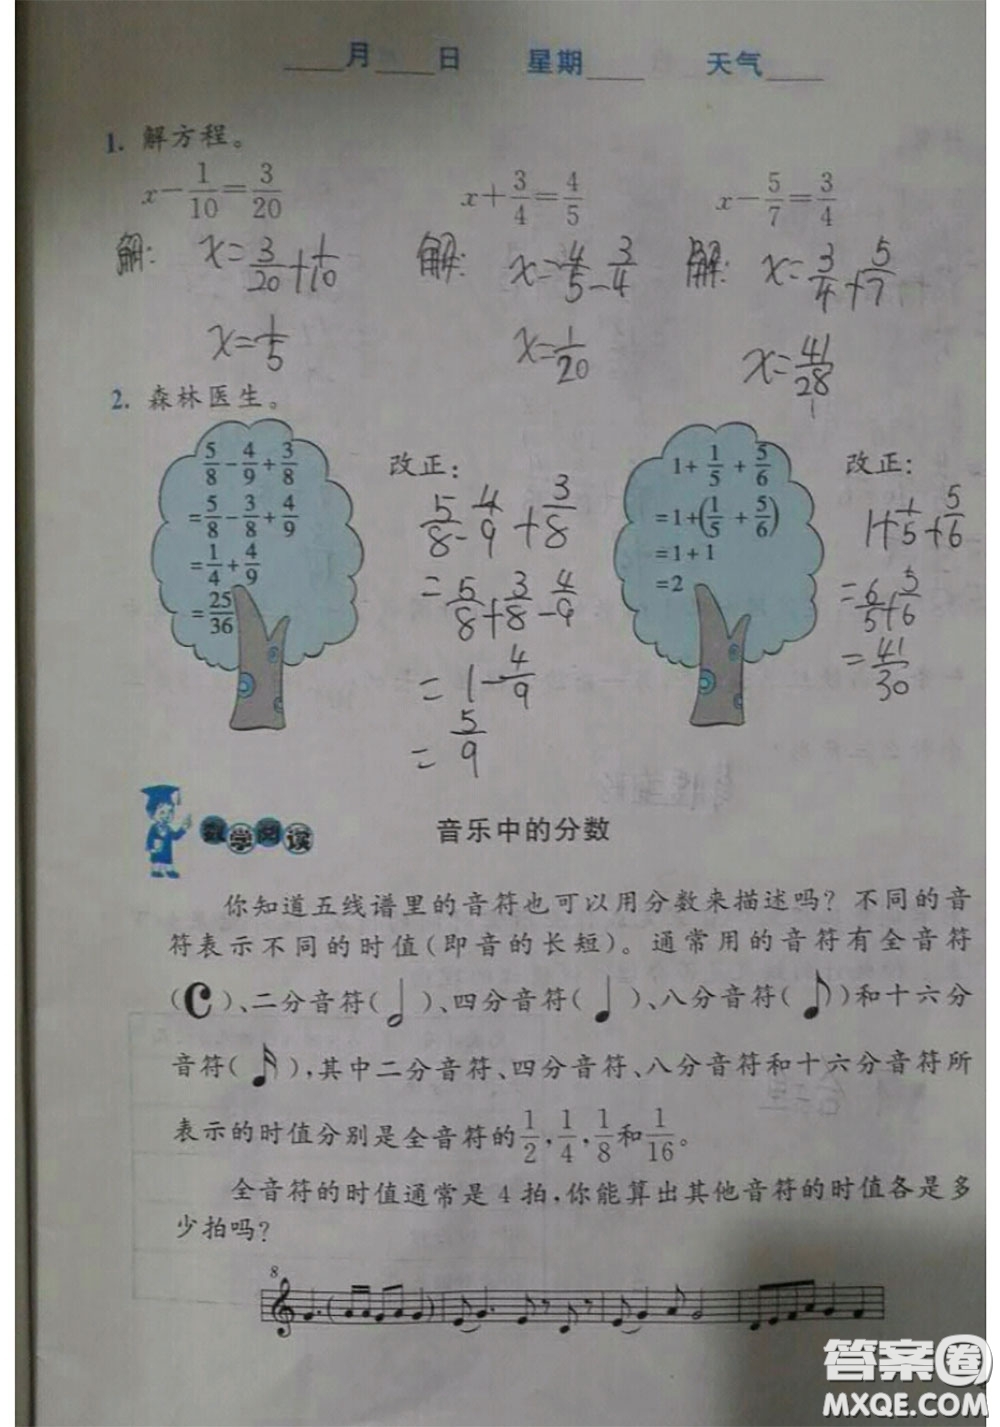 ____月____日 星期____ 天气____
1. 解方程。
x－1/10＝3/20 x＋3/4＝4/5 x－5/7＝3/4
解: x=3/20+1/10 解: x=4/5-3/4 解: x=3/4+5/7
x=1/5 x=1/20 x=41/28
2. 森林医生。
5/8－4/9＋3/8
=5/8－3/8＋4/9
=1/4＋4/9
=25/36
改正:
5/8-4/9+3/8
=5/8+3/8-4/9
=1-4/9
=5/9
1+1/5+5/6
=1+(1/5+5/6)
=1+1
=2
改正:
1+1/5+5/6
=6/5+5/6
=41/30
数学阅读
音乐中的分数
你知道五线谱里的音符也可以用分数来描述吗？不同的音
符表示不同的时值(即音的长短)。通常用的音符有全音符
(C)、二分音符(𝅗𝅥)、四分音符(♩)、八分音符(♪)和十六分
音符(𝅘𝅥𝅯),其中二分音符、四分音符、八分音符和十六分音符所
表示的时值分别是全音符的1/2,1/4,1/8和1/16。
全音符的时值通常是4拍,你能算出其他音符的时值各是多
少拍吗？
8
答案圈
MXQE.COM